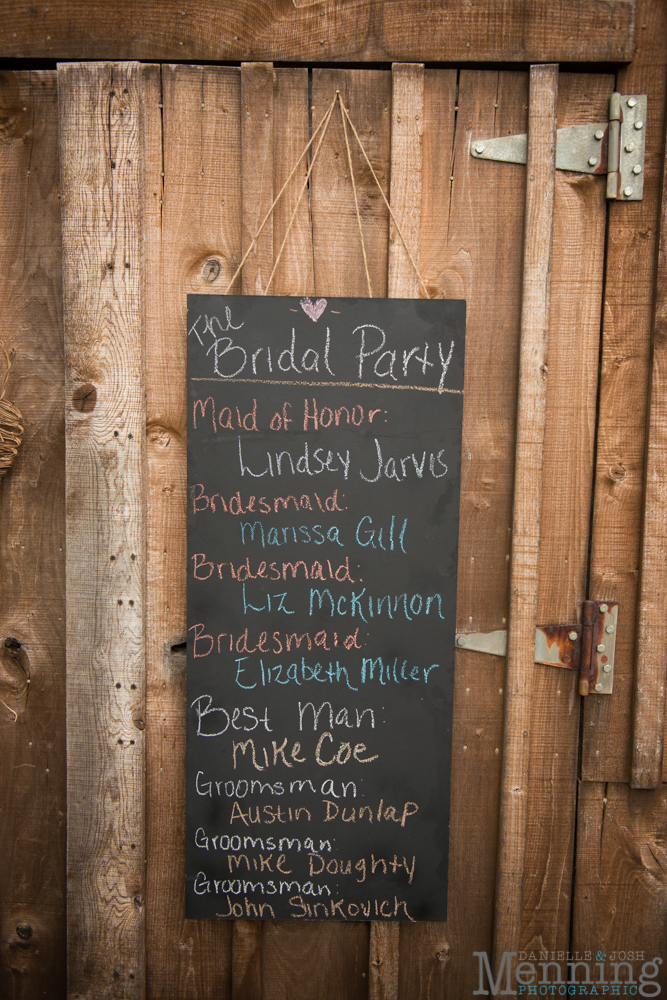 The
Bridal Party
Maid of Honor:
Lindsey Jarvis
Bridesmaid:
Marissa Gill
Bridesmaid:
Liz McKinnon
Bridesmaid:
Elizabeth Miller
Best Man:
Mike Coe
Groomsman:
Austin Dunlap
Groomsman:
Mike Doughty
Groomsman:
John Sinkovich
DANIELLE & JOSH
Menning
PHOTOGRAPHIC